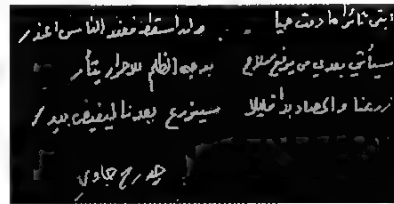 ابقى ثائرًا ما دمت حيا .. ولو اسقط فعند الناس اعذر
سيأتي بعدي من يرفع سلاح بوجه الظلم للاحرار يثأر
زرعنا والحصاد بدا قليلا سيزرع بعدنا ليفيض بيدر
جاوي